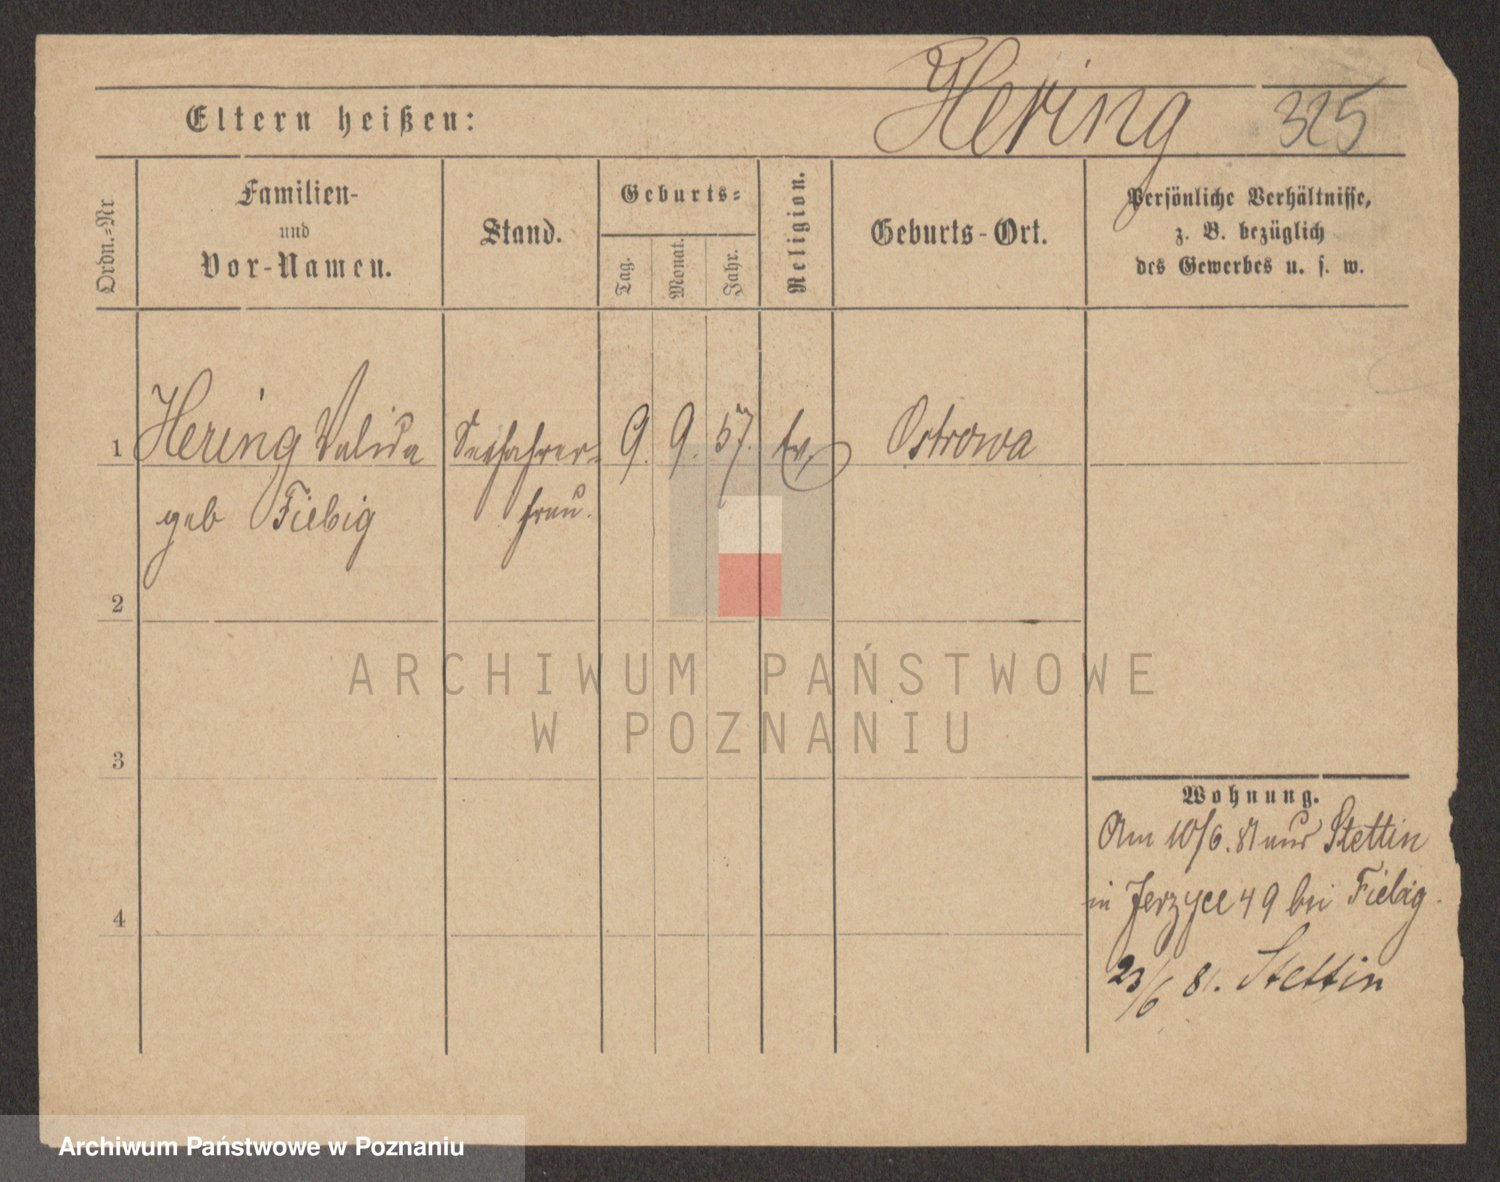 Hering 325
Eltern heißen:
Ordn.=Nr
Familien-
und
Vor-Namen.
Stand.
Geburts=
Tag.
Monat.
Jahr.
Religion.
Geburts-Ort.
Persönliche Verhältnisse,
z. B. bezüglich
des Gewerbes u. s. w.
1 Hering Valida Seefahrer= 9. 9. 57. Ev. Ostrowa
geb Fiebig frau.
2
ARCHIWUM PAŃSTWOWE
W POZNANIU
3
Wohnung.
Am 10/6. 81 aus Stettin
in Jerzyce 49 bei Fiebig.
4
23/6 81. Stettin
Archiwum Państwowe w Poznaniu